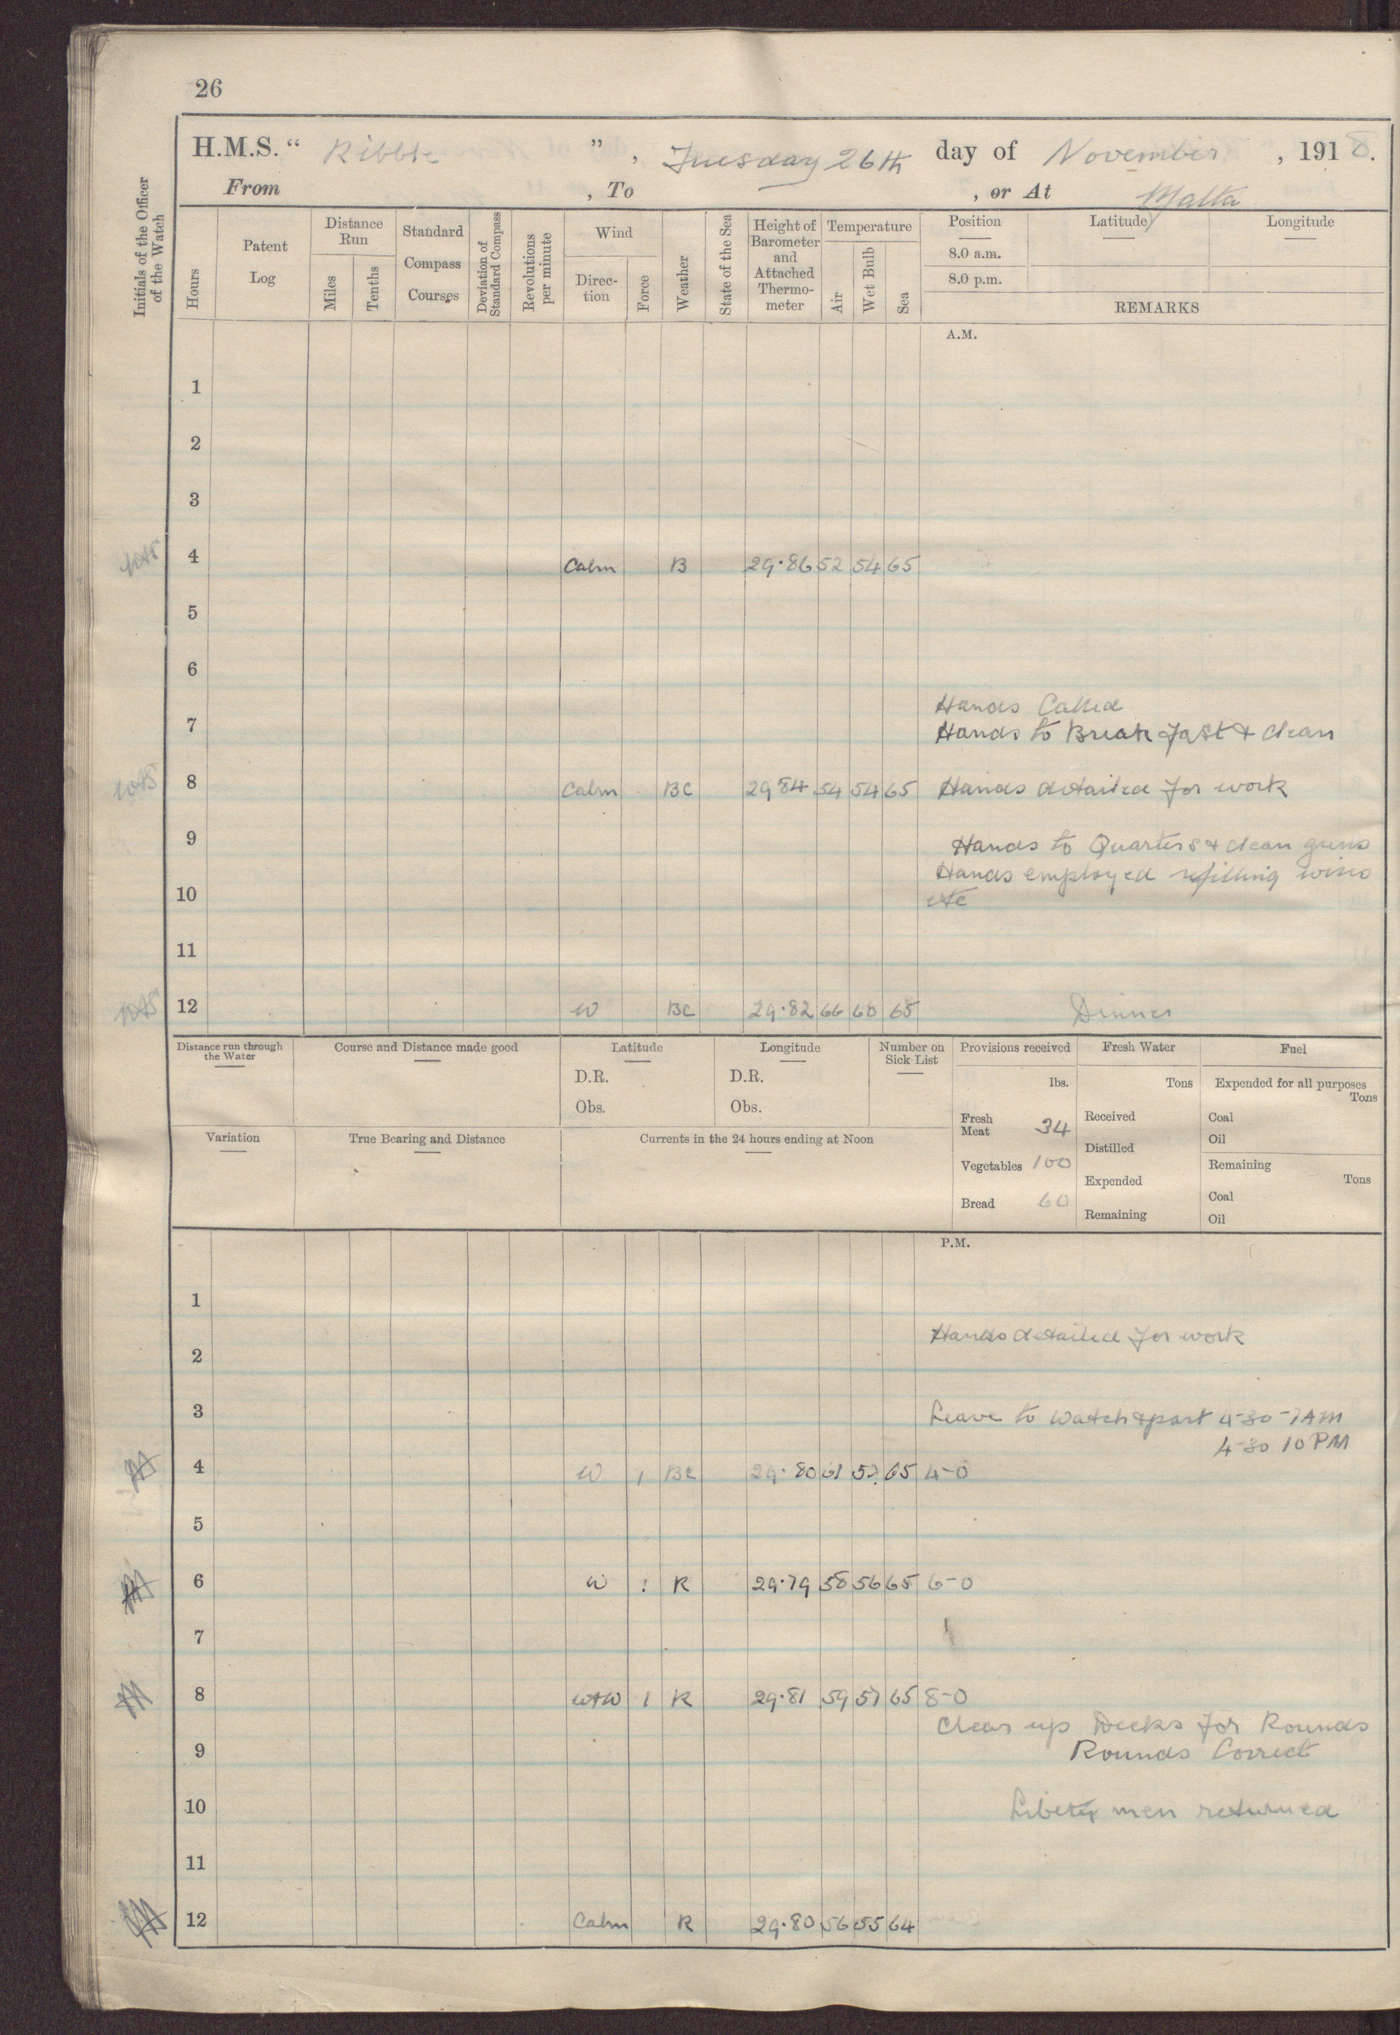 26
H.M.S. “ Ribble ” , Tuesday 26th day of November , 1918.
From , To , or At Malta
Initials of the Officer of the Watch
Hours
Patent Log
Distance Run
Miles
Tenths
Standard Compass Courses
Deviation of Standard Compass
Revolutions per minute
Wind
Direction
Force
Weather
State of the Sea
Height of Barometer and Attached Thermometer
Temperature
Air
Wet Bulb
Sea
Position
Latitude
Longitude
8.0 a.m.
8.0 p.m.
REMARKS
A.M.
1
2
3
4 Calm B 29.86 52 54 65
5
6
Hands Called
7 Hands to Breakfast & clean
8 Calm BC 29 84 54 54 65 Hands detailed for work
9 Hands to Quarters & clean guns
Hands employed refilling
10 etc
11
12 W BC 29.82 66 60 65 Dinner
Distance run through the Water
Course and Distance made good
Latitude
D.R.
Obs.
Longitude
D.R.
Obs.
Number on Sick List
Provisions received
lbs.
Fresh Meat 34
Vegetables 100
Bread 60
Fresh Water
Tons
Received
Distilled
Expended
Remaining
Fuel
Expended for all purposes
Tons
Coal
Oil
Remaining
Tons
Coal
Oil
Variation
True Bearing and Distance
Currents in the 24 hours ending at Noon
P.M.
1
Hands detailed for work
2
3 Leave to watch & part 4-30 - 7 AM
4-30 10 PM
4 W 1 BC 29.80 61 57 65 4-0
5
6 W 1 R 29.79 58 56 65 6-0
7
8 1 R 29.81 59 57 65 8-0
Clear up Decks for Rounds
9 Rounds Correct
10 Liberty men returned
11
12 Calm R 29.80 56 55 64